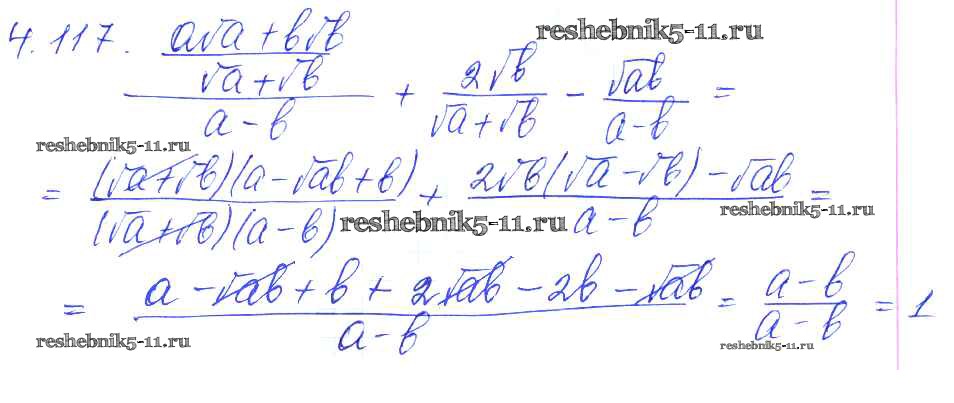 4.117. (a√a + b√b)/(√a + √b)/(a − b) + 2√b/(√a + √b) − √ab/(a − b) =
reshebnik5-11.ru
reshebnik5-11.ru
= (√a + √b)(a − √ab + b)/(√a + √b)(a − b) + (2√b(√a − √b) − √ab)/(a − b) =
reshebnik5-11.ru
reshebnik5-11.ru
= (a − √ab + b + 2√ab − 2b − √ab)/(a − b) = (a − b)/(a − b) = 1
reshebnik5-11.ru
reshebnik5-11.ru